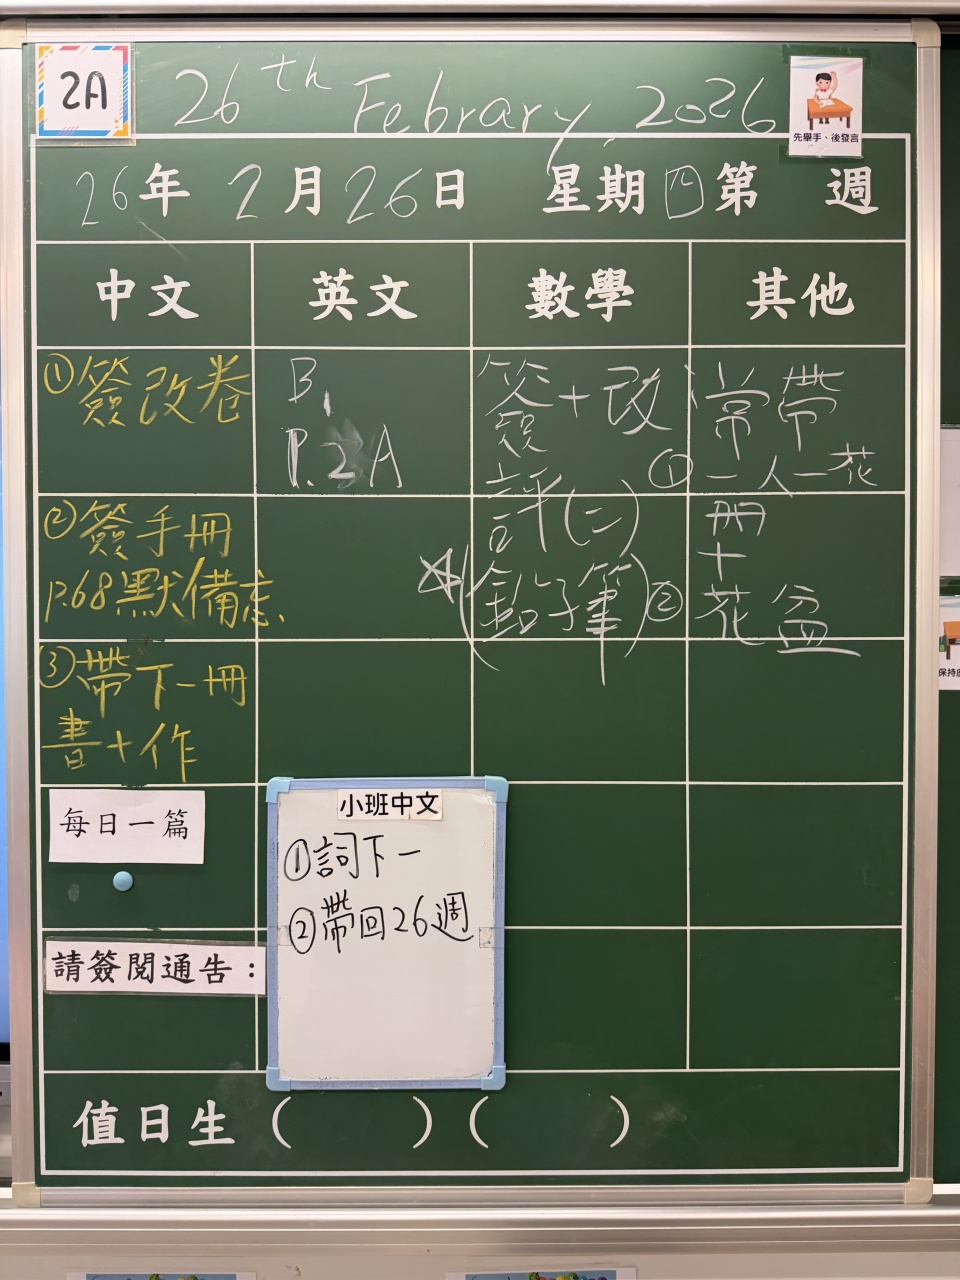 2A
26th Febrary, 2026
先舉手、後發言
26年 2月26日 星期四第 週
中文 英文 數學 其他
①簽改卷
②簽手冊
p.68默備忘
③帶下一冊
書+作
B,
P.2A
簽+改
評(二)
(鉛子筆)
常帶
①一人一花
冊
+
②花盆
每日一篇
請簽閱通告：
小班中文
①詞下一
②帶回26週
值日生 ( ) ( )